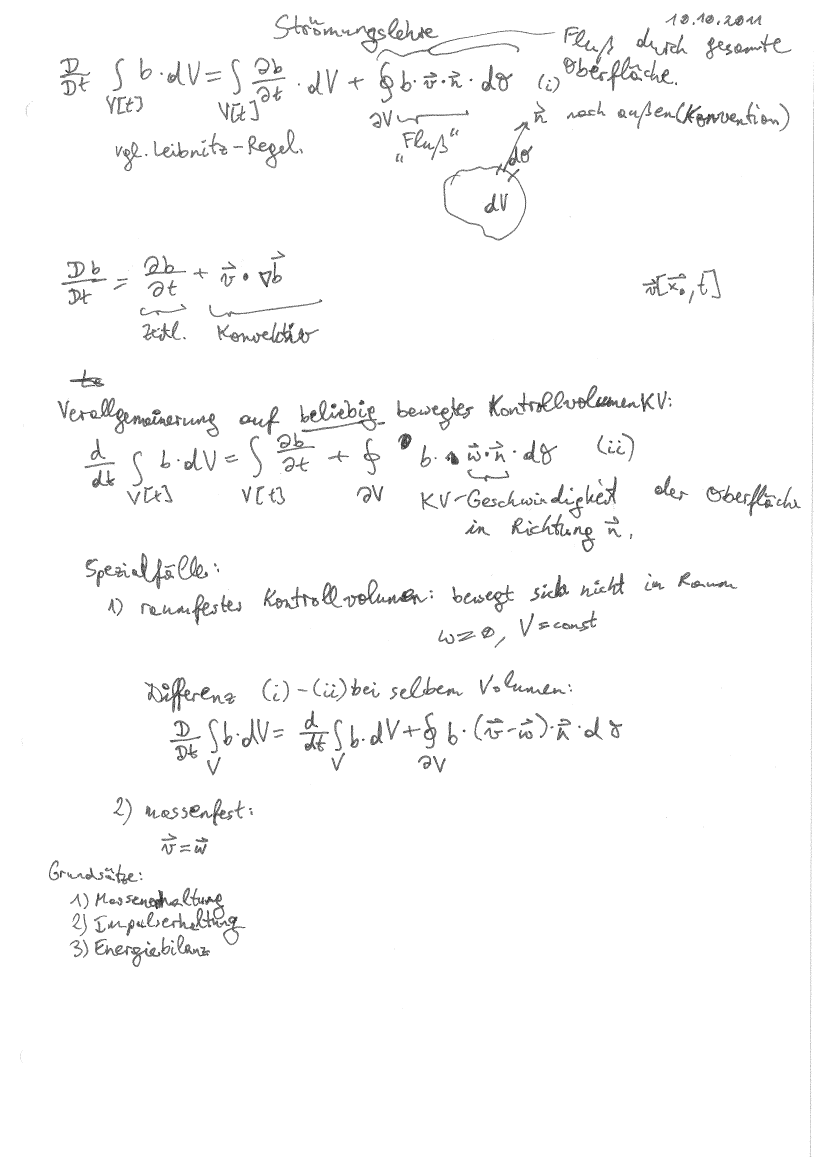 10.10.2011
Strömungslehre
Fluß durch gesamte
Oberfläche.
D/Dt ∫_V[t] b·dV = ∫_V[t] ∂b/∂t · dV + ∮_∂V b·v⃗·n⃗·dσ (i)
„Fluß“
n⃗ nach außen (Konvention)
vgl. Leibnitz-Regel.
dσ
dV
Db/Dt = ∂b/∂t + v⃗ • ∇b⃗
v⃗[x⃗₀,t]
zeitl. Konvektiv
Verallgemeinerung auf beliebig bewegtes Kontrollvolumen KV:
d/dt ∫_V[t] b·dV = ∫_V[t] ∂b/∂t + ∮_∂V b·w⃗·n⃗·dσ (ii)
KV-Geschwindigkeit der Oberfläche
in Richtung n⃗.
Spezialfälle:
1) raumfestes Kontrollvolumen: bewegt sich nicht im Raum
w=0, V=const
Differenz (i)-(ii) bei selbem Volumen:
D/Dt ∫_V b·dV = d/dt ∫_V b·dV + ∮_∂V b·(v⃗-w⃗)·n⃗·dσ
2) massenfest:
v⃗=w⃗
Grundsätze:
1) Massenerhaltung
2) Impulserhaltung
3) Energiebilanz